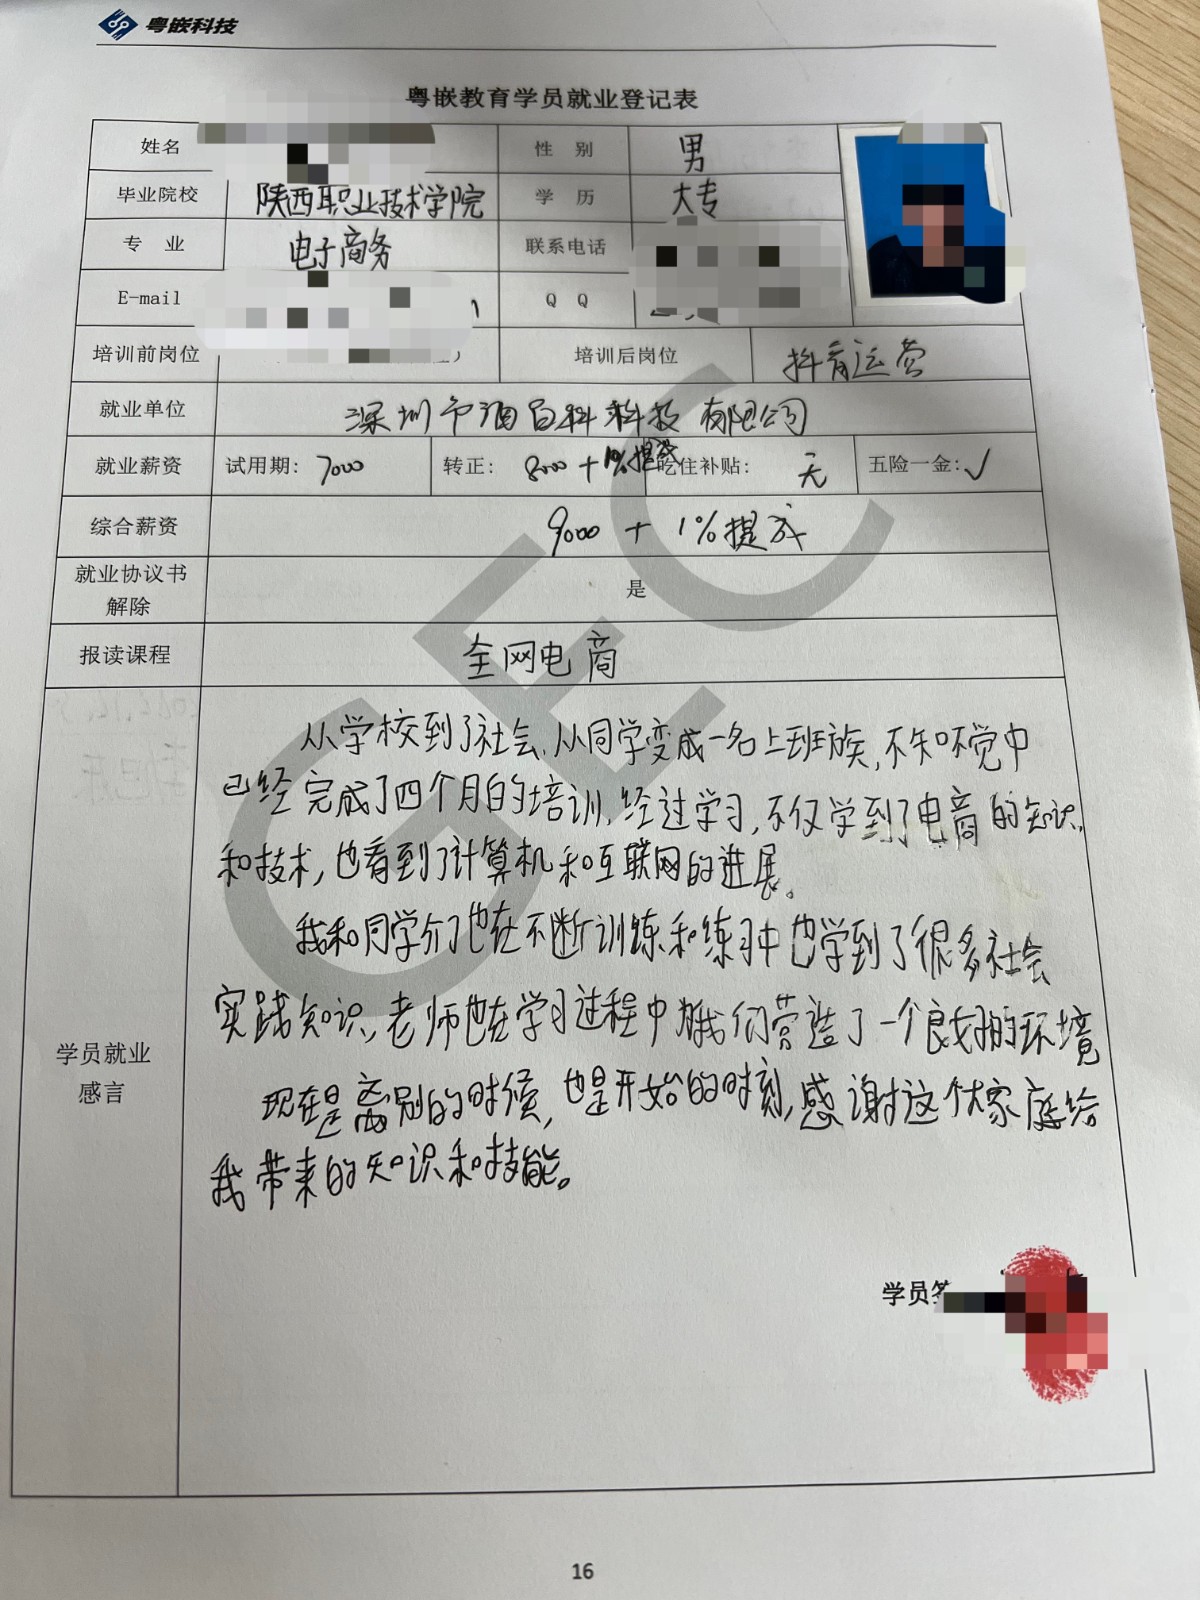 粤嵌科技
粤嵌教育学员就业登记表
姓名 性 别 男
毕业院校 陕西职业技术学院 学 历 大专
专 业 电子商务 联系电话
E-mail Q Q
培训前岗位 培训后岗位 抖音运营
就业单位 深圳市酒百科科技有限公司
就业薪资 试用期: 7000 转正: 8000 + 1%提成 吃住补贴: 无 五险一金: ✓
综合薪资 9000 + 1%提成
就业协议书
解除 是
报读课程 全网电商
从学校到了社会、从同学变成一名上班族,不知不觉中
已经完成了四个月的培训,经过学习,不仅学到了电商的知识
和技术,也看到了计算机和互联网的进展。
我和同学们也在不断训练和练习中也学到了很多社会
实践知识,老师也在学习过程中为我们营造了一个良好的环境
现在是离别的时候,也是开始的时刻,感谢这个大家庭给
我带来的知识和技能。
学员就业
感言
学员签
GEC
16